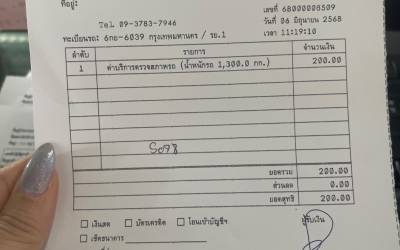 ที่อยู่:
เลขที่ 68000008509
Tel 09-3783-7946
วันที่ 06 มิถุนายน 2568
ทะเบียนรถ: 6กย-6039 กรุงเทพมหานคร / รย.1
เวลา 11:19:10
ลำดับ รายการ จำนวนเงิน
1 ค่าบริการตรวจสภาพรถ (น้ำหนักรถ 1,300.0 กก.) 200.00
ยอดรวม 200.00
ส่วนลด 0.00
ยอดสุทธิ 200.00
เงินสด บัตรเครดิต โอนเข้าบัญชีฯ ผู้รับเงิน
เช็คธนาคาร